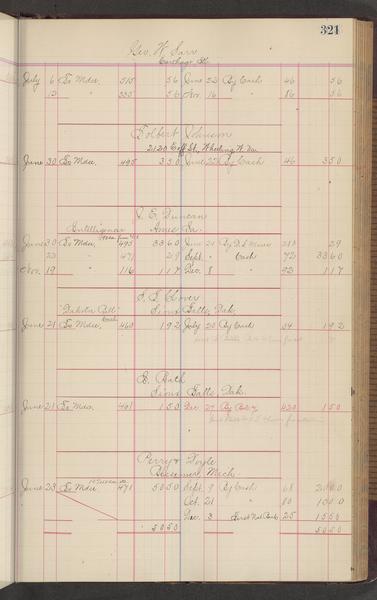 321
Geo. W. Carr
Carthage Ills.
July 6 To Mdse. 515 56 June 22 By Cash 46 56
12 " 535 56 Nov. 16 " 86 56
Tolbert Johnson
2120 Eoff St., Wheeling W. Va.
June 30 To Mdse. 495 3 50 June 25 By Cash 46 3 50
S. E. Duncan
Intelligencer Ames Ia.
June 30 To Mdse. 495 33 60 June 21 By 213 29
22 " 471 29 Sept. 8 " Cash 72 33 60
Nov. 19 " 116 1 17 Dec. 8 " 92 1 17
S. S. Clover
"Dakota Bell" Sioux Falls, Dak.
June 21 To Mdse. 460 1 92 July 20 By Cash 54 1 92
G. Bath
Sioux Falls, Dak.
June 21 To Mdse. 461 1 50 Dec 27 By 420 1 50
Perry & Doyle
Bessemer, Mich.
June 23 To Mdse 471 50 50 Sept. 9 By Cash 68 20 00
Oct. 21 " 80 15 00
Dec. 3 " First Nat Bank 25 15 50
50 50 50 50